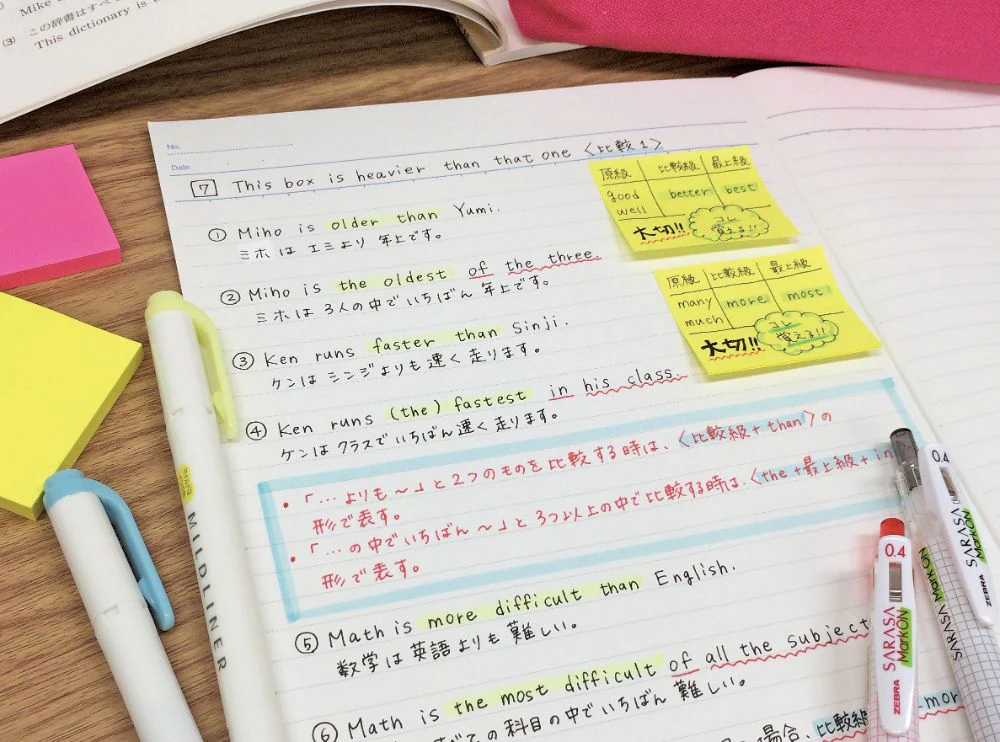 Mike
(3) この辞書はすべ
This dictionary is t
No.
Date
7 This box is heavier than that one 〈比較1〉
① Miho is older than Yumi.
ミホは エミより 年上です。
② Miho is the oldest of the three.
ミホは 3人の中でいちばん 年上です。
③ Ken runs faster than Sinji.
ケンは シンジよりも 速く 走ります。
④ Ken runs (the) fastest in his class.
ケンは クラスでいちばん 速く 走ります。
原級 比較級 最上級
good better best
well
大切!! コレ
覚える!!
原級 比較級 最上級
many more most
much
大切!! コレ
覚える!!
・「…よりも〜」と2つのものを比較する時は、〈比較級+than〉の
形で表す。
・「…の中でいちばん〜」と3つ以上の中で比較する時は、〈the+最上級+in
形で表す。
⑤ Math is more difficult than English.
数学は英語よりも 難しい。
⑥ Math is the most difficult of all the subject
の科目の中でいちばん 難しい。
場合、比較級
mor
MILDLINER
0.4
SARASA
MarkON
ZEBRA
0.4
SARASA
MarkON
ZEBRA
SARASA MarkON